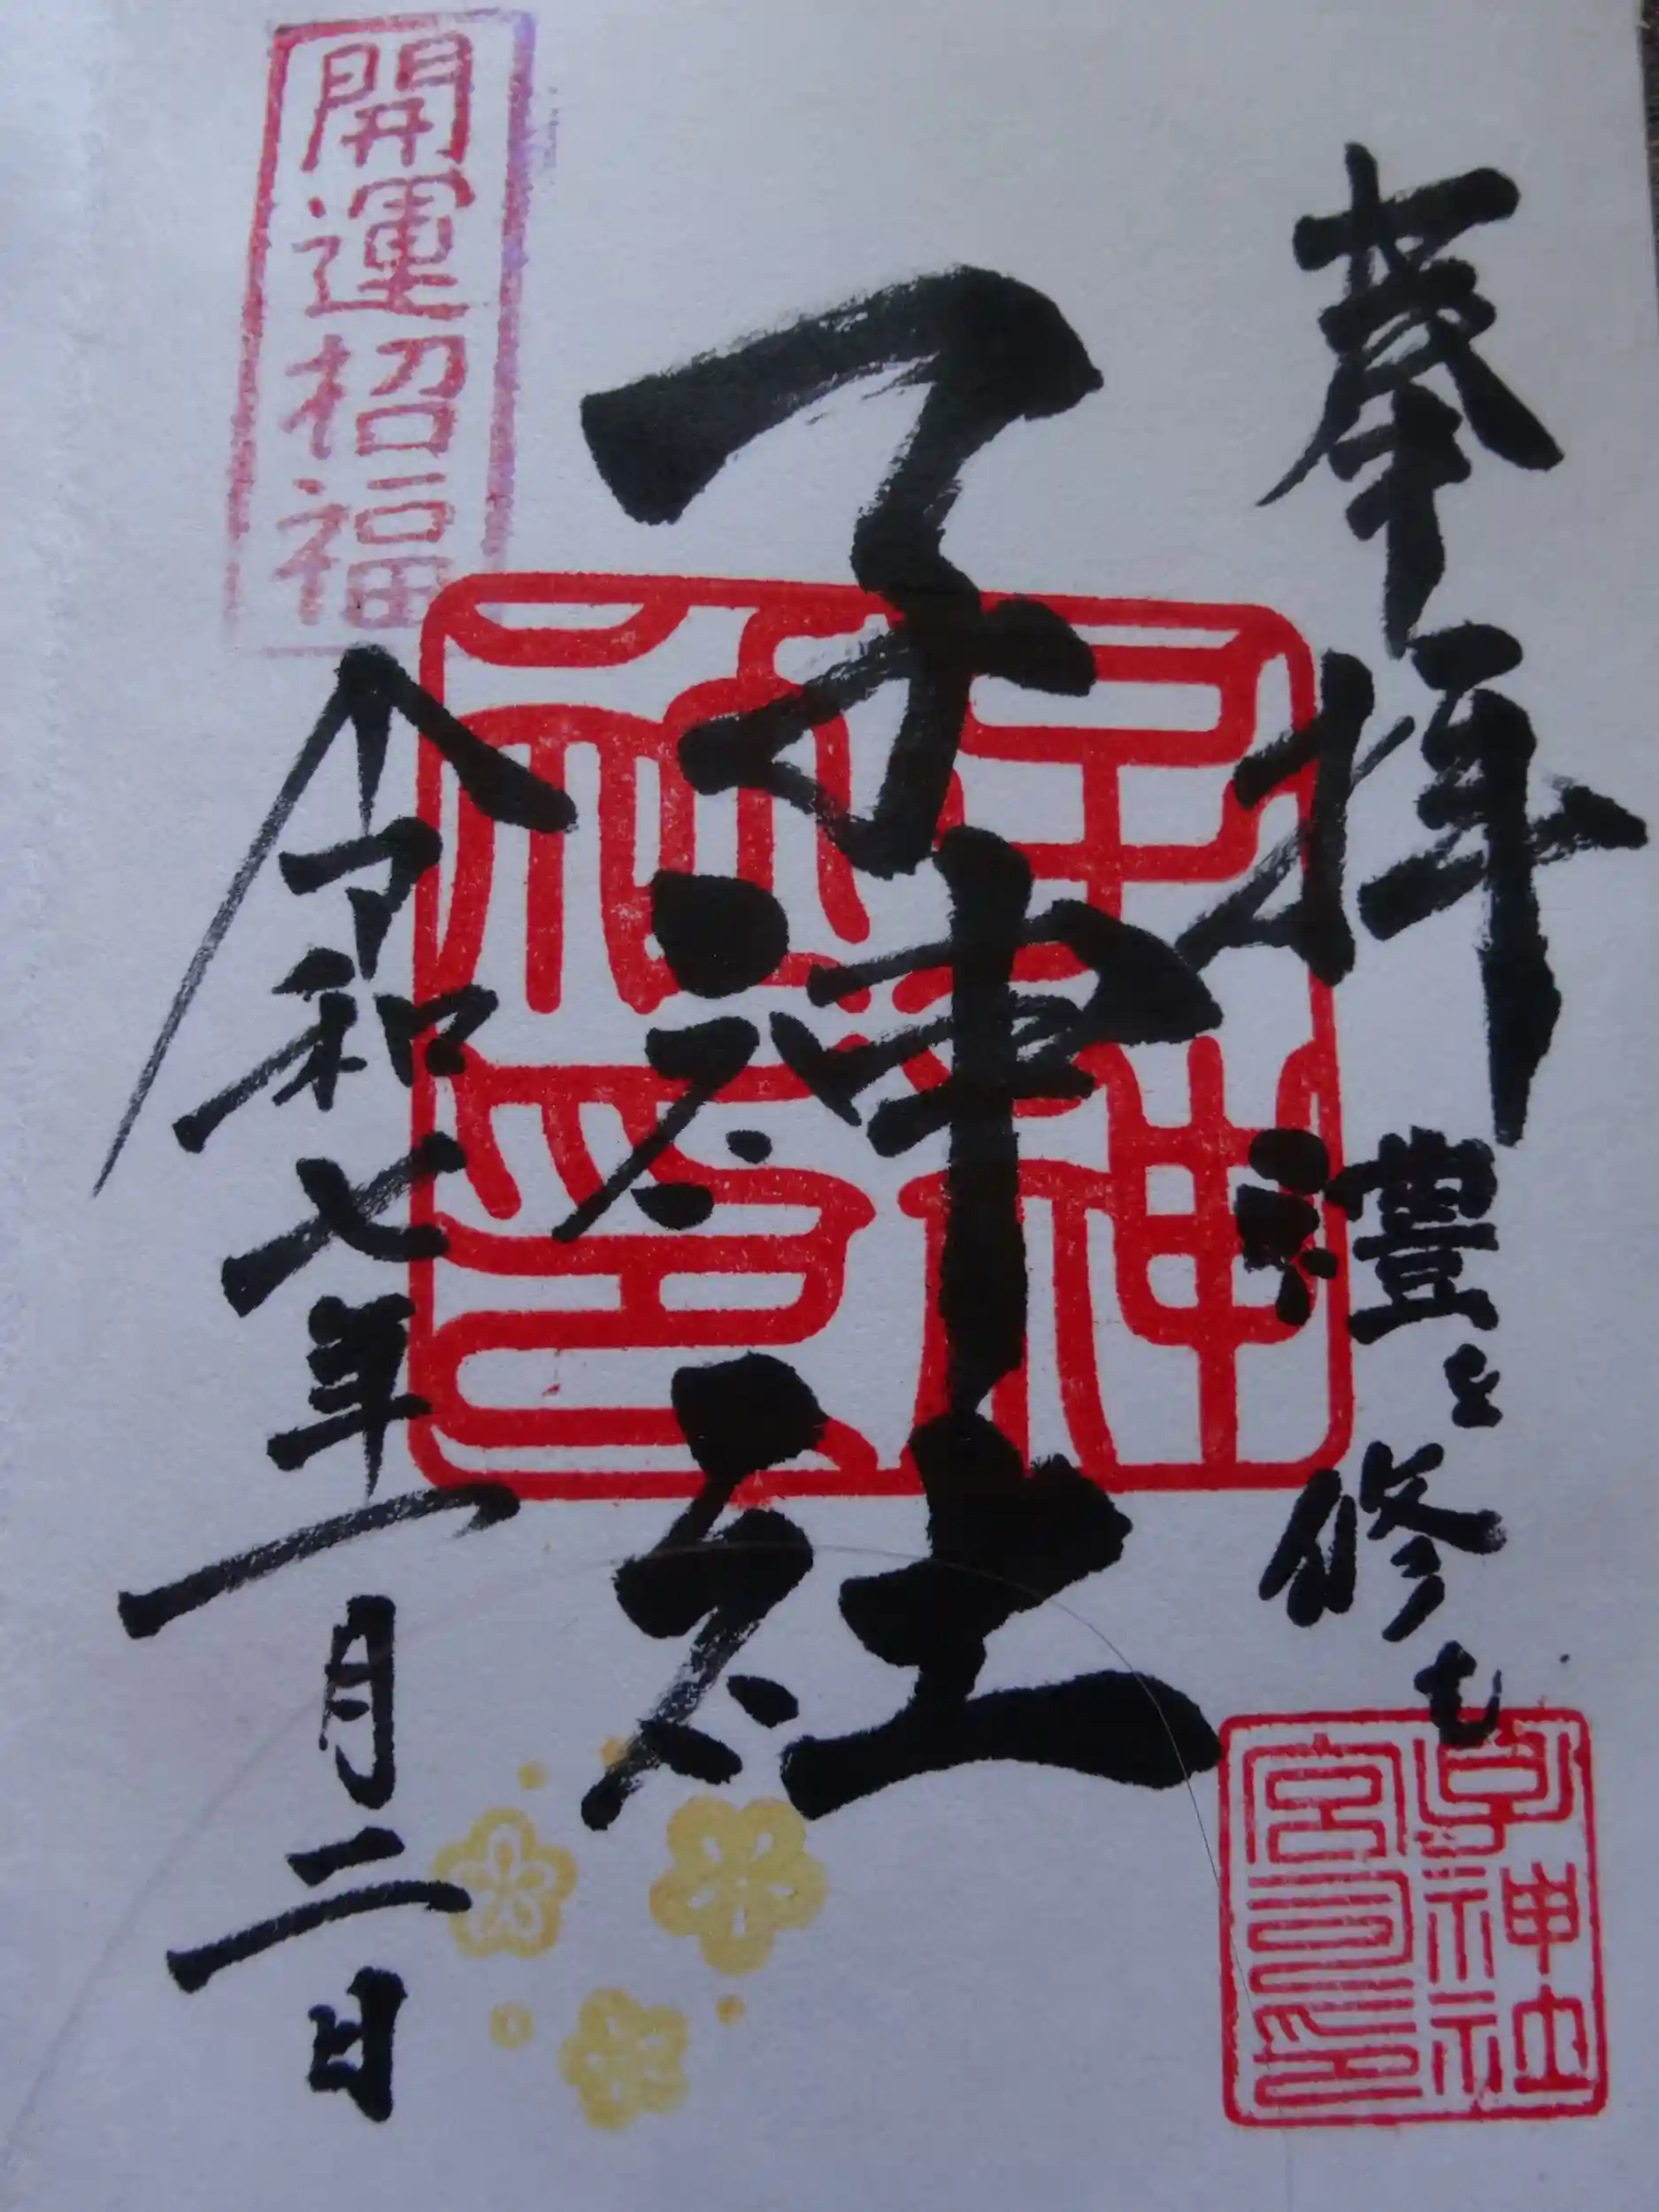 奉拝
禮を修む
子神社
令和七年一月二日
開運招福
子神社印
子神社
宮司印